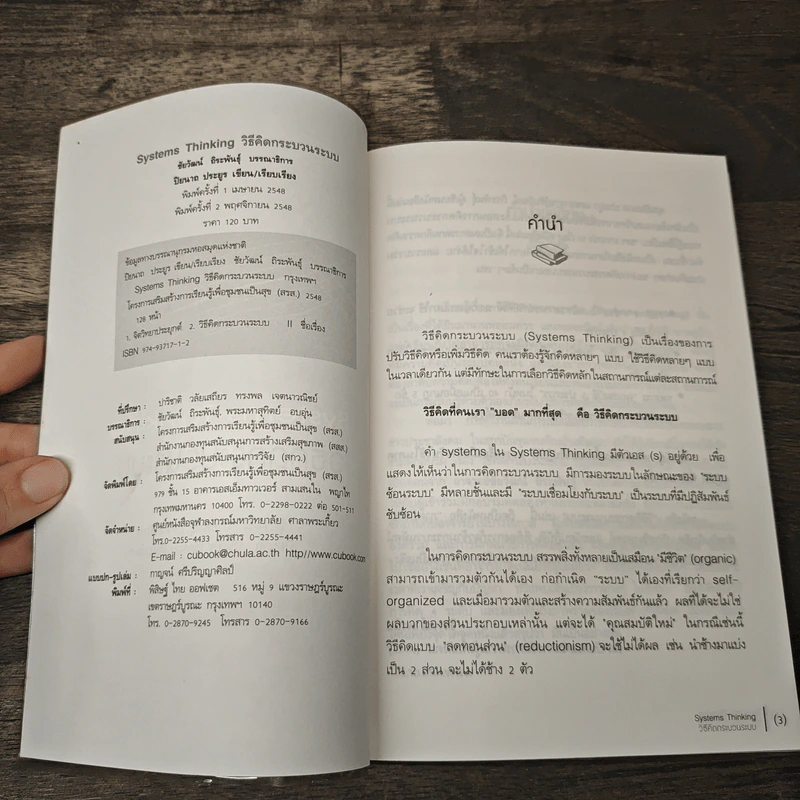 Systems Thinking วิธีคิดกระบวนระบบ
ชัยวัฒน์ ถิระพันธุ์ บรรณาธิการ
ปิยนาถ ประยูร เขียน/เรียบเรียง
พิมพ์ครั้งที่ 1 เมษายน 2548
พิมพ์ครั้งที่ 2 พฤศจิกายน 2548
ราคา 120 บาท
ข้อมูลทางบรรณานุกรมหอสมุดแห่งชาติ
ปิยนาถ ประยูร เขียน/เรียบเรียง ชัยวัฒน์ ถิระพันธุ์ บรรณาธิการ
Systems Thinking วิธีคิดกระบวนระบบ กรุงเทพฯ
โครงการเสริมสร้างการเรียนรู้เพื่อชุมชนเป็นสุข (สรส.) 2548
128 หน้า
1. จิตวิทยาประยุกต์ 2. วิธีคิดกระบวนระบบ II ชื่อเรื่อง
ISBN 974-93717-1-2
ที่ปรึกษา : ปาริชาติ วลัยเสถียร ทรงพล เจตนาวณิชย์
บรรณาธิการ : ชัยวัฒน์ ถิระพันธุ์, พระมหาสุทิตย์ อบอุ่น
สนับสนุน : โครงการเสริมสร้างการเรียนรู้เพื่อชุมชนเป็นสุข (สรส.)
สำนักงานกองทุนสนับสนุนการสร้างเสริมสุขภาพ (สสส.)
สำนักงานกองทุนสนับสนุนการวิจัย (สกว.)
จัดพิมพ์โดย : โครงการเสริมสร้างการเรียนรู้เพื่อชุมชนเป็นสุข (สรส.)
979 ชั้น 15 อาคารเอสเอ็มทาวเวอร์ สามเสนใน พญาไท
กรุงเทพมหานคร 10400 โทร. 0-2298-0222 ต่อ 501-511
จัดจำหน่าย : ศูนย์หนังสือจุฬาลงกรณ์มหาวิทยาลัย ศาลาพระเกี้ยว
โทร.0-2255-4433 โทรสาร 0-2255-4441
E-mail : cubook@chula.ac.th http//www.cubook.com
แบบปก-รูปเล่ม : กาญจน์ ศรีปริญญาศิลป์
พิมพ์ที่ : พิสิษฐ์ ไทย ออฟเซต 516 หมู่ 9 แขวงราษฎร์บูรณะ
เขตราษฎร์บูรณะ กรุงเทพฯ 10140
โทร. 0-2870-9245 โทรสาร 0-2870-9166
คำนำ
วิธีคิดกระบวนระบบ (Systems Thinking) เป็นเรื่องของการ
ปรับวิธีคิดหรือเพิ่มวิธีคิด คนเราต้องรู้จักคิดหลายๆ แบบ ใช้วิธีคิดหลายๆ แบบ
ในเวลาเดียวกัน แต่มีทักษะในการเลือกวิธีคิดหลักในสถานการณ์แต่ละสถานการณ์
วิธีคิดที่คนเรา "บอด" มากที่สุด คือ วิธีคิดกระบวนระบบ
คำ systems ใน Systems Thinking มีตัวเอส (s) อยู่ด้วย เพื่อ
แสดงให้เห็นว่าในการคิดกระบวนระบบ มีการมองระบบในลักษณะของ "ระบบ
ซ้อนระบบ" มีหลายชั้นและมี "ระบบเชื่อมโยงกับระบบ" เป็นระบบที่มีปฏิสัมพันธ์
ซับซ้อน
ในการคิดกระบวนระบบ สรรพสิ่งทั้งหลายเป็นเสมือน "มีชีวิต" (organic)
สามารถเข้ามารวมตัวกันได้เอง ก่อกำเนิด "ระบบ" ได้เองที่เรียกว่า self-
organized และเมื่อมารวมตัวและสร้างความสัมพันธ์กันแล้ว ผลที่ได้จะไม่ใช่
ผลบวกของส่วนประกอบเหล่านั้น แต่จะได้ "คุณสมบัติใหม่" ในกรณีเช่นนี้
วิธีคิดแบบ "ลดทอนส่วน" (reductionism) จะใช้ไม่ได้ผล เช่น นำช้างมาแบ่ง
เป็น 2 ส่วน จะไม่ได้ช้าง 2 ตัว
Systems Thinking
วิธีคิดกระบวนระบบ
(3)